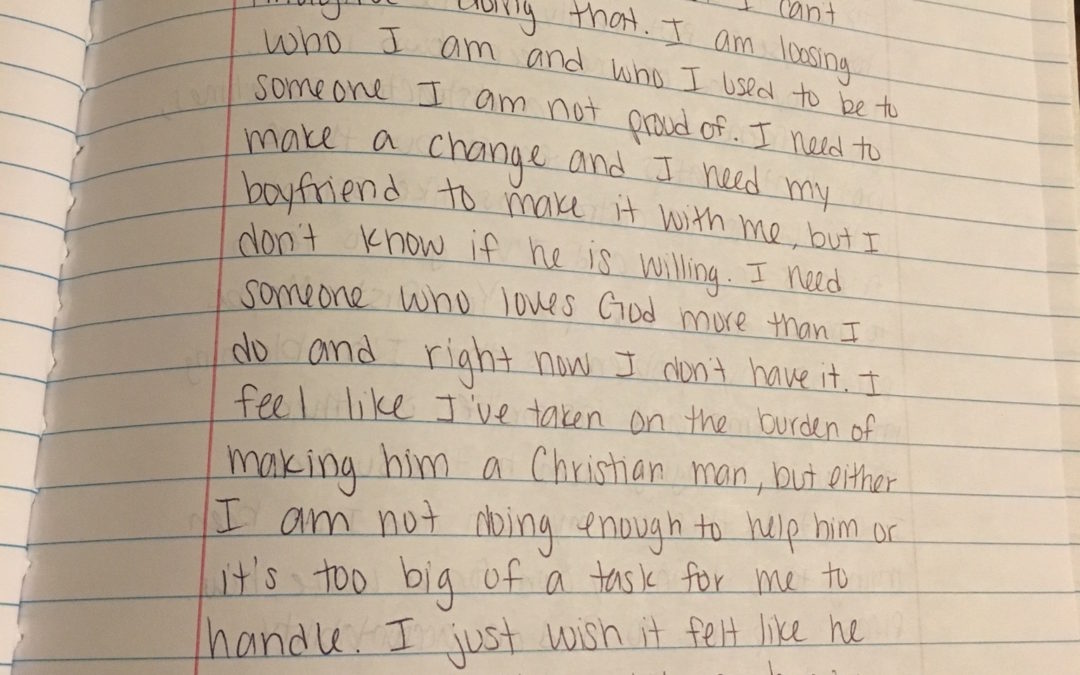 doing that. I can't
who I am and who I used to be to
am loosing
someone I am not proud of. I need to
make a change and I need my
boyfriend to make it with me, but I
don't know if he is willing. I need
someone who loves God more than I
do and right now I don't have it. I
feel like I've taken on the burden of
making him a Christian man, but either
I am not doing enough to help him or
it's too big of a task for me to
handle. I just wish it felt like he